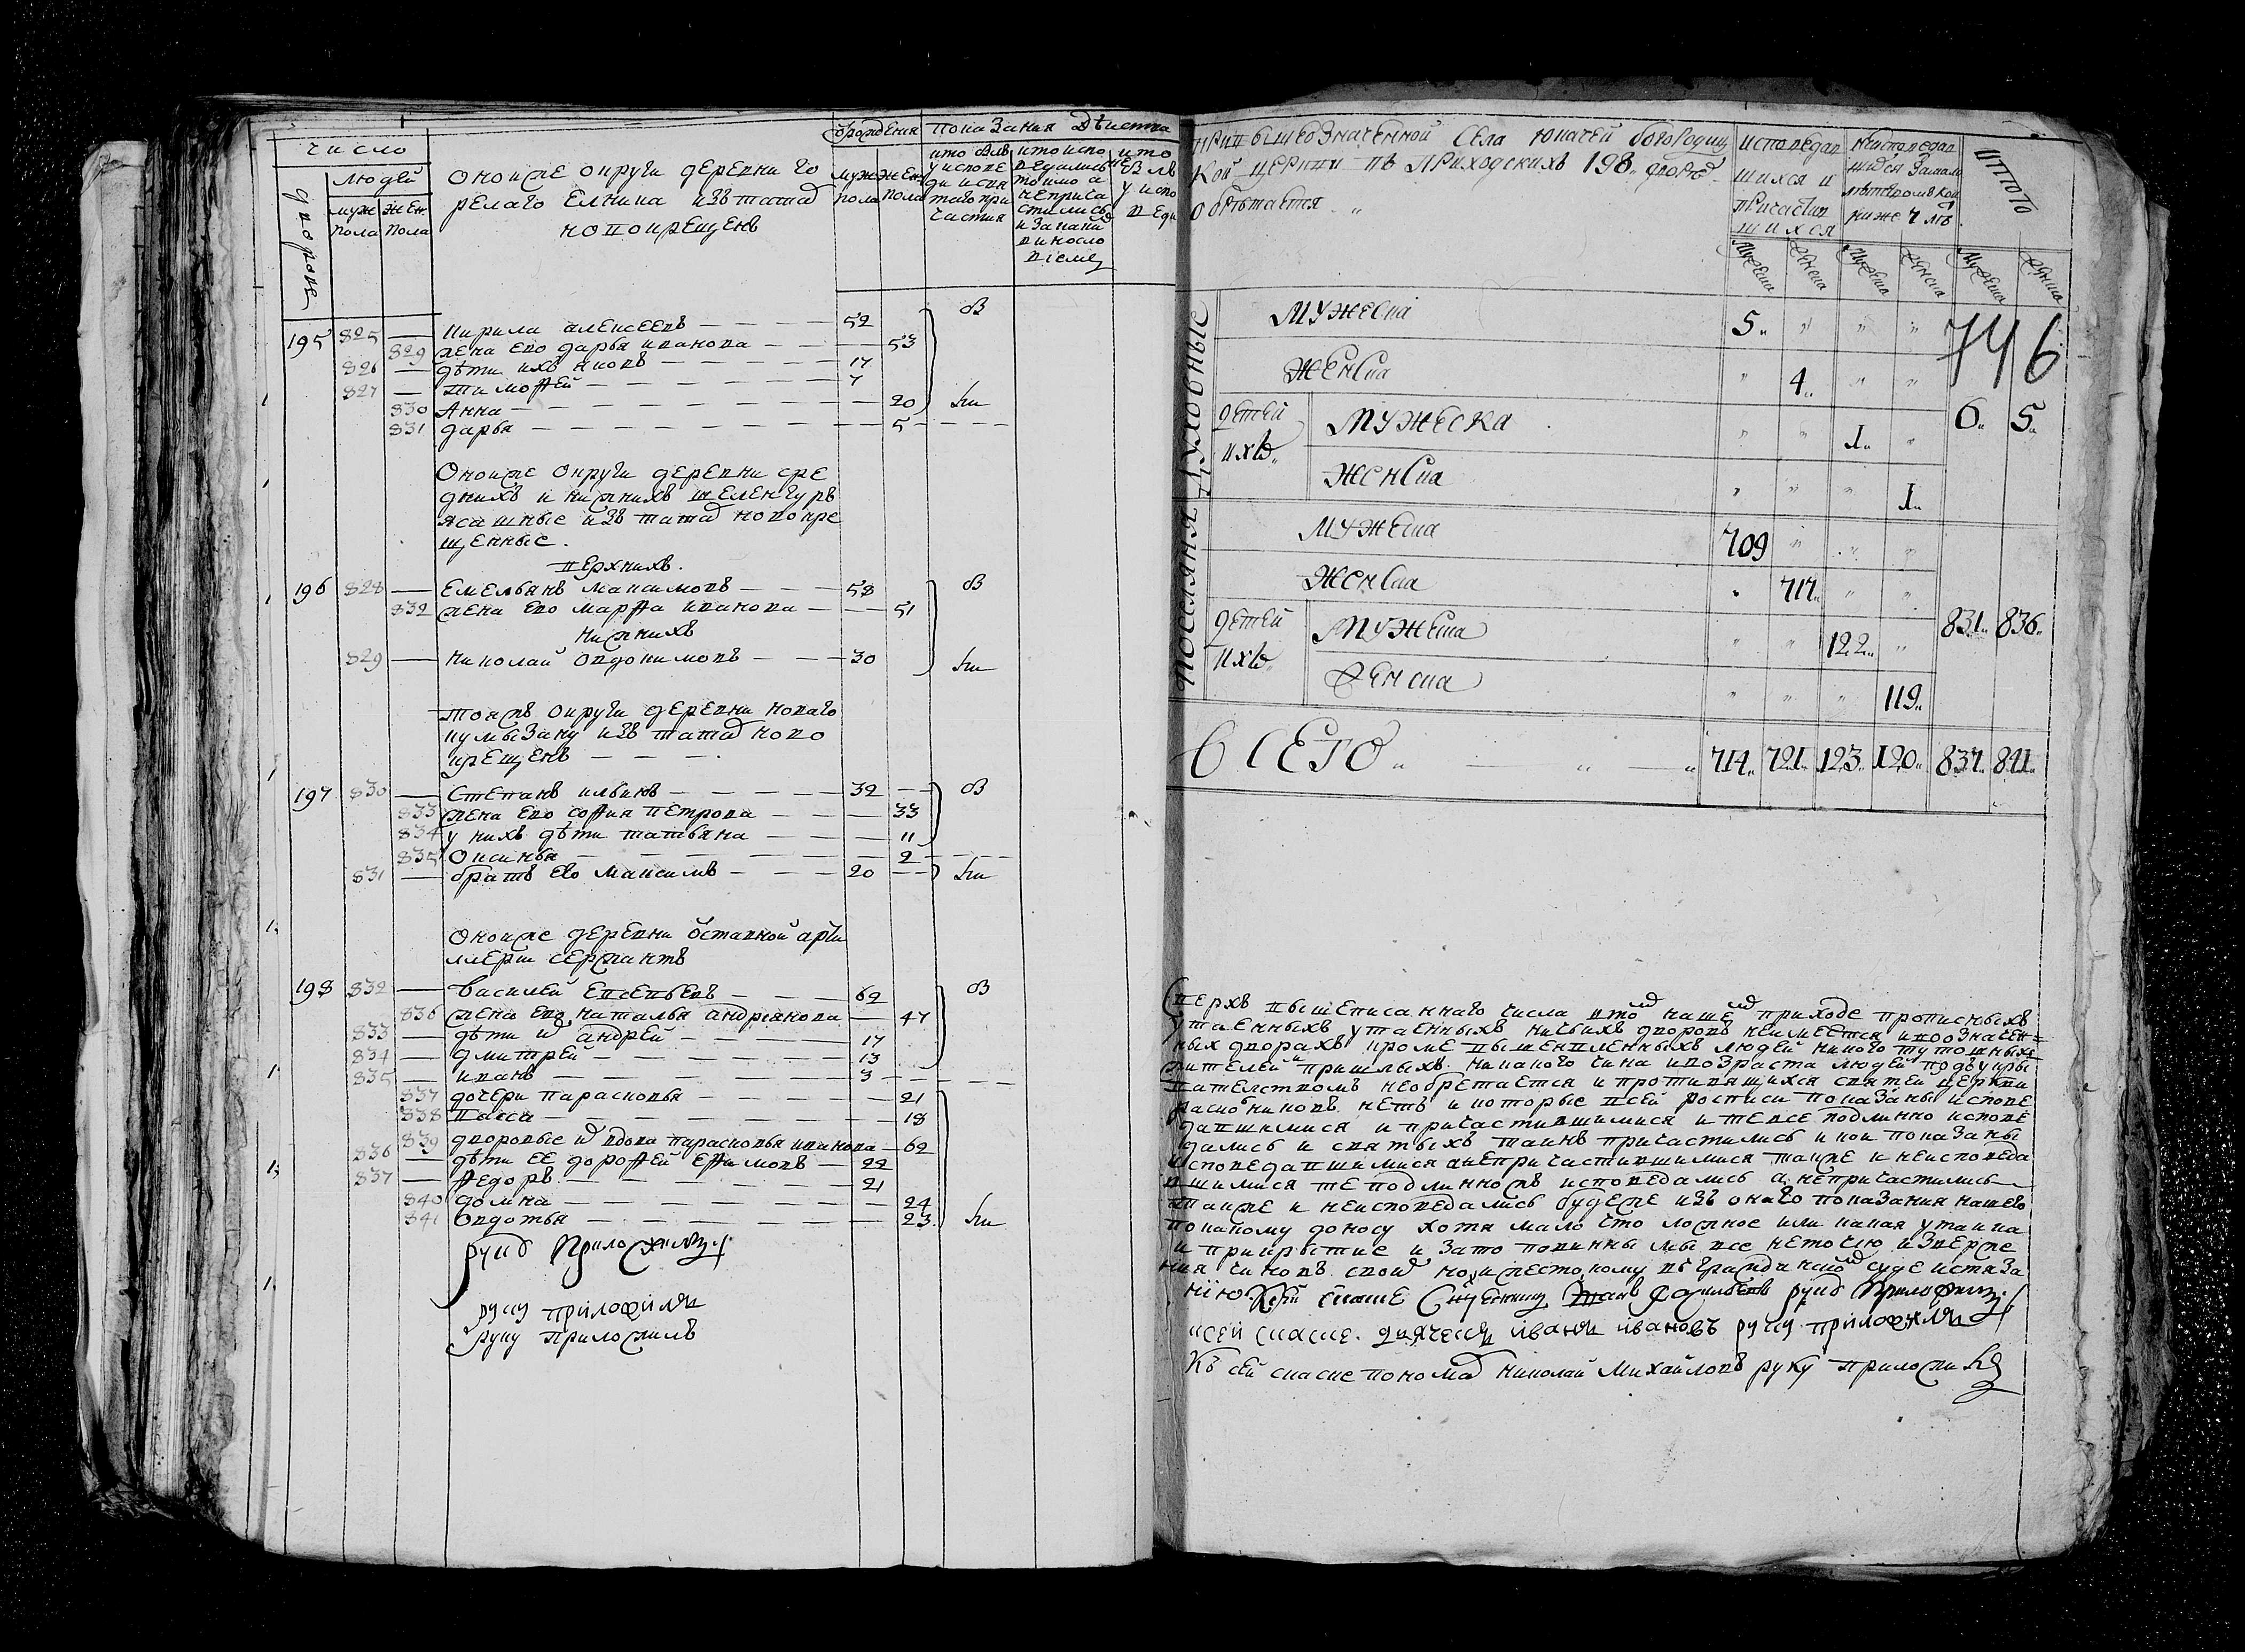 число
людей
дворовъ
муж пола
жен. пола
Оной же округи деревни го
релаго Елчина изъ татар
новокрещенъ
от рождения
муж пола
жен пола
показания действа
кто былъ у исповеди и святаго причастия
кто испо ведались токмо а не прича стились и за какий виносло виемъ
кто не былъ у испо веди
195 825 — Кирила алексеевъ — — — 52 был
829 жена ево дарья иванова — — 53
826 — дѣти ихъ яковъ — — — 17
827 — тимофей — — — — 7
830 Анна — — — — — — 20 ли
831 дарья — — — — — — 5 — — —
Оной же округи деревни сре
днихъ и нижнихъ шеленгуръ
ясашные изъ татар новокре
щенные.
верхнихъ.
196 828 — Емельянъ максимовъ — — 58 был
832 жена ево марфа иванова — — 51
нижнихъ
829 — николай овдокимовъ — — 30 ли
тояжъ округи деревни новаго
кумызану изъ татар ново
крещенъ — — — .
197 830 — Степанъ ильинъ — — — — 32 — — был
833 жена ево софия петрова — — — 33
834 у нихъ дѣти татьяна — — — 11
835 Оксинья — — — — — — 2 — — —
831 — братъ его максимъ — — — 20 — — ли
Оной же деревни отставной арти
ллерии сержантъ
198 832 — василей Евсевьевъ — — — 62 был
836 жена ево наталья андреянова — 47
833 — дѣти их андрей — — — 17
834 — дмитрей — — — — 13
835 — иванъ — — — — — 3 — — —
837 дочери парасковья — — — 21
838 васса — — — — — — 18
839 дворовые их вдова парасковья иванова — 62
836 — дѣти ее дорофей Ефимовъ — 22
837 — федоръ. — — — — 21
840 домна — — — — — — 24
841 Овдотья — — — — — — 23 ли
руку приложилъ
руку приложилъ
руку приложилъ
при вышеозначенной села богородиц
кой церкви въ приходскихъ 198 дворах
обретается
исповедав шихся и причастив шихся
неисповедав шихся за мало летством кои ниже 7 летъ
итого
мужеска женска мужеска женска мужеска женска
746
духовные
мужеска 5 " " "
женска " 4 " "
детей ихъ
мужеска " " 1 "
женска " " " 1
6 5
поселяня
мужеска 709 " " "
женска " 717 " "
детей ихъ
мужеска " " 122 "
женска " " " 119
831 836
всего " — " — " 714 721 123 120 837 841
сверхъ вышеписаннаго числа в том нашем приходе прописныхъ
утаенныхъ утаенныхъ ничьихъ дворовъ неимеется и вооначен=
ных дворахъ кроме вышевпленныхъ людей никого тутошныхъ
жителей и пришлыхъ. никакого чина и возраста людей подъ укры
вателствомъ необретается и противящихся святей церкви
расколниковъ нетъ и которые в сей росписи показаны испове
давшимися и причастившимися и те все подлинно испове
дались и святыхъ таинъ причастились и кои показаны
исповедавшимися а непричастившимися также и неисповеда
вшимися те подлинножъ исповедались а непричастились
также и неисповедались будеже изъ онаго показания нашего
по какому доносу хотя мало что ложное или какая утайка
и прикрытие и за то повинны мы все неточию извержe
ния чиновъ своих но и жестокому въ гражданском суде истяза
нию к сей скаске Священникъ Иванъ Васильевъ руку приложилъ
к сей скаске. дьячекъ иванъ ивановъ руку приложилъ
Къ сей скаске пономар николай Михайловъ руку приложилъ